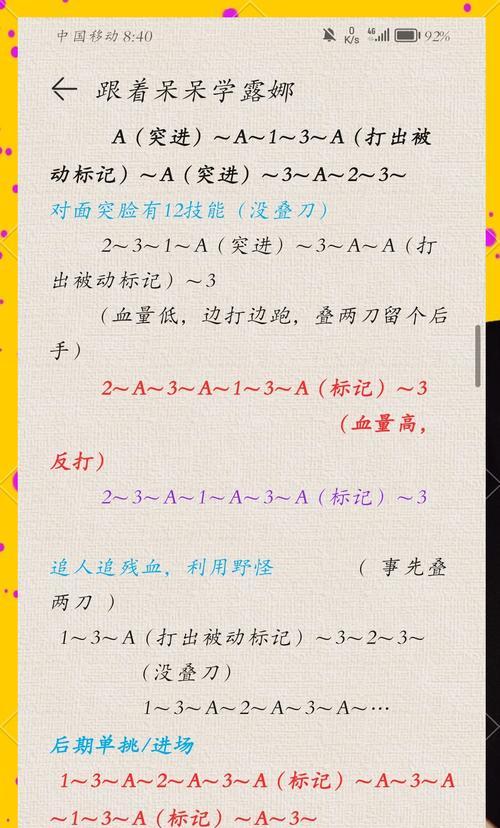 中国移动 8:40
0 K/s 4G 92%
← 跟着呆呆学露娜
A（突进）~A~1~3~A（打出被
动标记）~A（突进）~3~A~2~3~
对面突脸有12技能（没叠刀）
2~3~1~A（突进）~3~A~A（打
出被动标记）~3
（血量低，边打边跑，叠两刀留个后
手）
2~A~3~A~1~3~A（标记）~3
（血量高，
反打）
2~3~A~1~A~3~A（标记）~3
追人追残血，利用野怪 （ 事先叠
两刀 ）
1~3~A（打出被动标记）~3~2~3~
（没叠刀）
1~3~A~2~A~3~A~…
后期单挑/进场
1~3~A~2~A~3~A（标记）~A~3~A
~1~3~A（标记）~A~3~